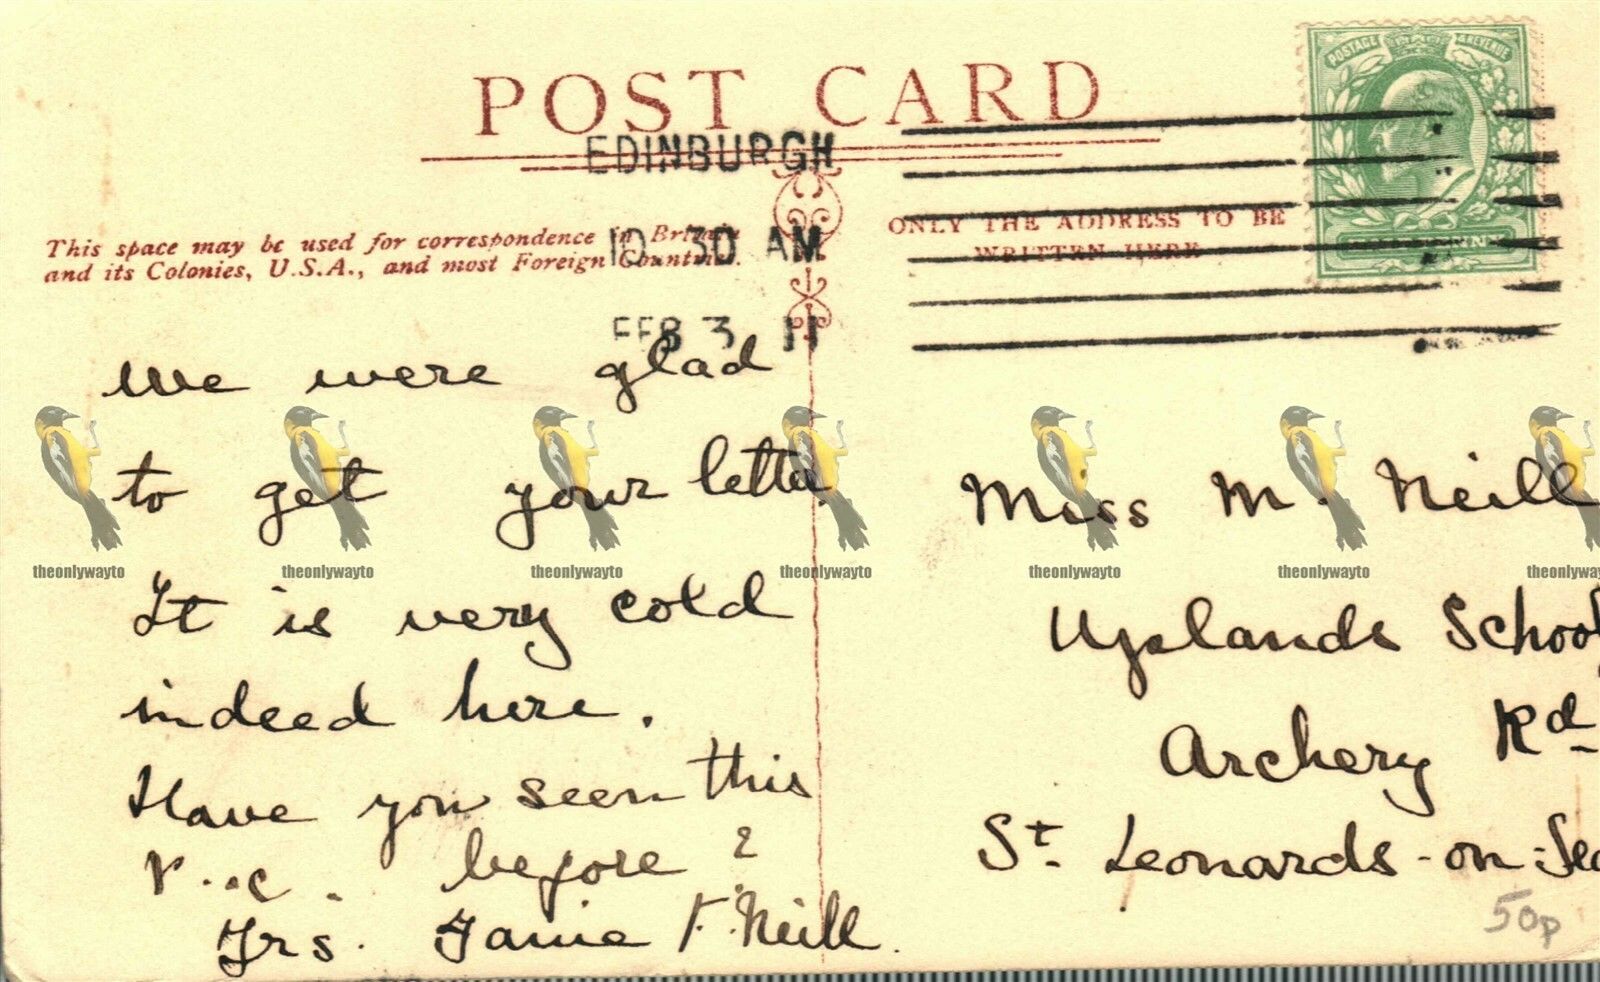 POST CARD
EDINBURGH
10 30 AM
FEB 3 11
POSTAGE & REVENUE
This space may be used for correspondence in Britain
and its Colonies, U.S.A., and most Foreign Countries.
ONLY THE ADDRESS TO BE
WRITTEN HERE
We were glad
to get your letter.
It is very cold
indeed here.
Have you seen this
P.C. before?
Yrs. Janie F. Neill.
Miss M. Neill
Uplands School
Archery Rd
St. Leonards-on-Sea
50p
theonlywayto theonlywayto theonlywayto theonlywayto theonlywayto theonlywayto theonlyway